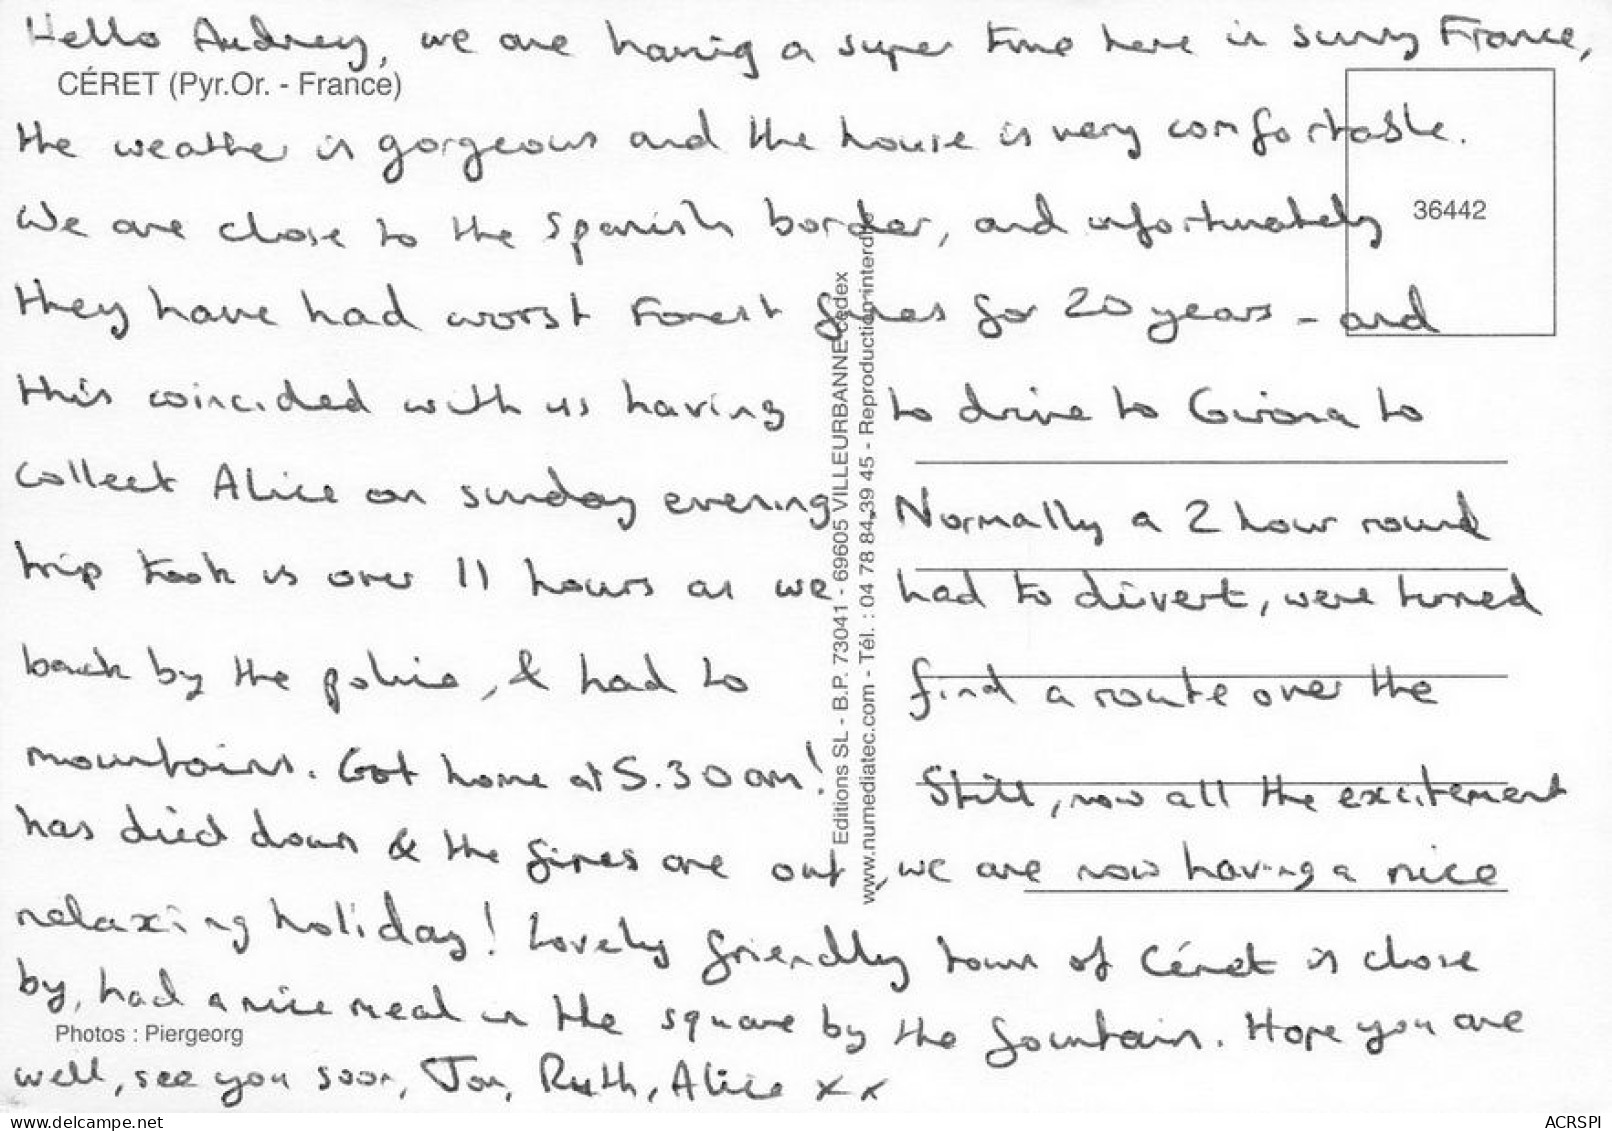 Hello Audrey, we are having a super time here in sunny France,
CÉRET (Pyr.Or. - France)
the weather is gorgeous and the house is very comfortable.
We are close to the Spanish border, and unfortunately
36442
they have had worst Forest fires for 20 years - and
this coincided with us having to drive to Girona to
collect Alice on sunday evening Normally a 2 hour round
trip took us over 11 hours as we had to divert, were turned
back by the police, & had to find a route over the
mountains. Got home at 5.30am! Still, now all the excitement
has died down & the fires are out, we are now having a nice
relaxing holiday! Lovely friendly town of Céret is close
by, had a nice meal in the square by the fountain. Hope you are
Photos : Piergeorg
well, see you soon, Jon, Ruth, Alice xx
Editions SL - B.P. 73041 - 69605 VILLEURBANNE cedex
www.numediatec.com - Tél. : 04 78 84 39 45 - Reproduction interdite
www.delcampe.net
ACRSPI